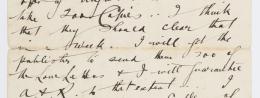 take 500 Copies . . I think
that they should clear that
in a week. I will get the
publisher to send them 500 of
the Love Letters & I will guarantee
A & R. to that extent . . I